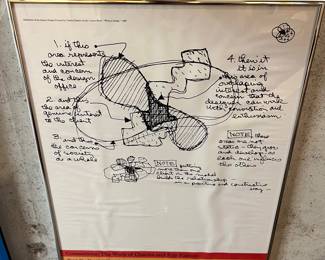 1. if this
area represents
the interest
and concern
of the design
office
2. and this
the area of
genuine interest
to the client
3. and this
the concerns
of society
as a whole
4. then it
is in
this area of
overlapping
interest and
concern that the
designer can work
with conviction and
enthusiasm
NOTE: these
areas are not
static - they grow
and develop as
each one influences
the others
NOTE: putting
more than one
client in the model
builds the relationship -
in a positive and constructive
way -
Connections: The Work of Charles and Ray Eames